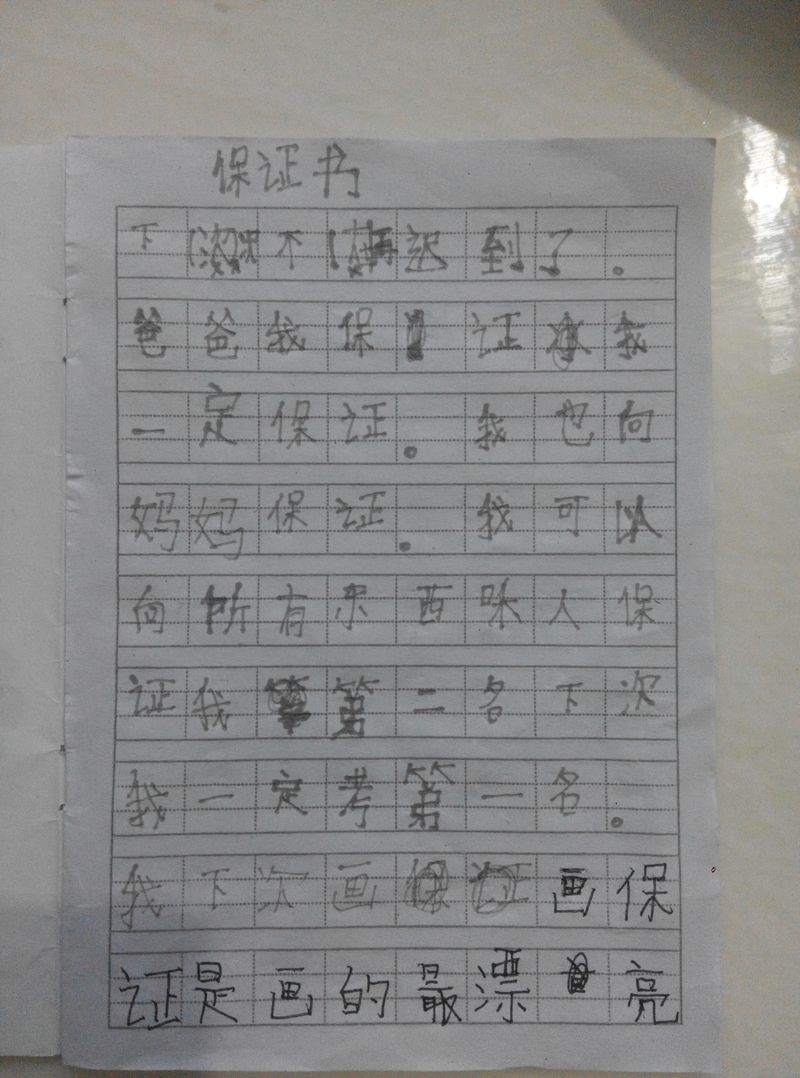 保证书
下次不再迟到了。
爸爸我保证我
一定保证。我也向
妈妈保证。我可以
向所有东西味人保
证我第二名下次
我一定考第一名。
我下次画画保
证是画的最漂亮